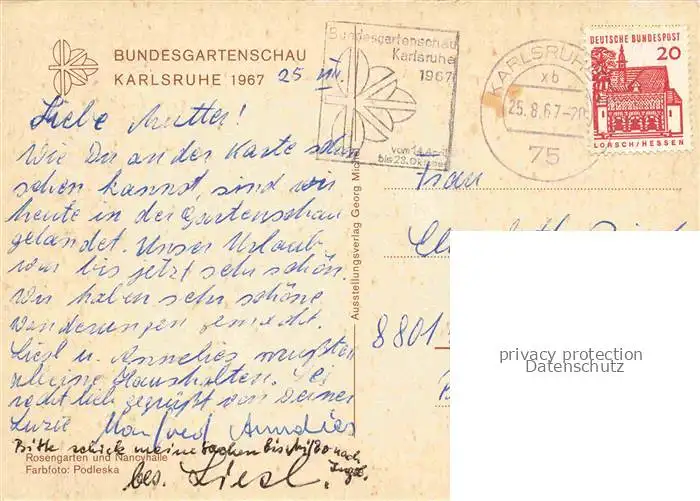 BUNDESGARTENSCHAU
KARLSRUHE 1967
25. VIII.
Liebe Mutter!
Wie Du an der Karte schon
sehen kannst, sind wir
heute in der Gartenschau
gelandet. Unser Urlaub
war bis jetzt sehr schön.
Wir haben sehr schöne
Wanderungen gemacht.
Liesl u. Annelies mußten
kleine Haushalten. Sei
recht lieb gegrüßt von Deiner
Luzie Manfred Annelies
Bitte schicke meine Sachen bis
nach
bes. Liesl.
Rosengarten und Nancyhalle
Farbfoto: Podleska
Ausstellungsverlag Georg
Bundesgartenschau
Karlsruhe
1967
vom 14. April
bis 23. Oktober
KARLSRUHE
xb
25.8.67-20
75
DEUTSCHE BUNDESPOST
20
LORSCH/HESSEN
Frau
8801
privacy protection
Datenschutz